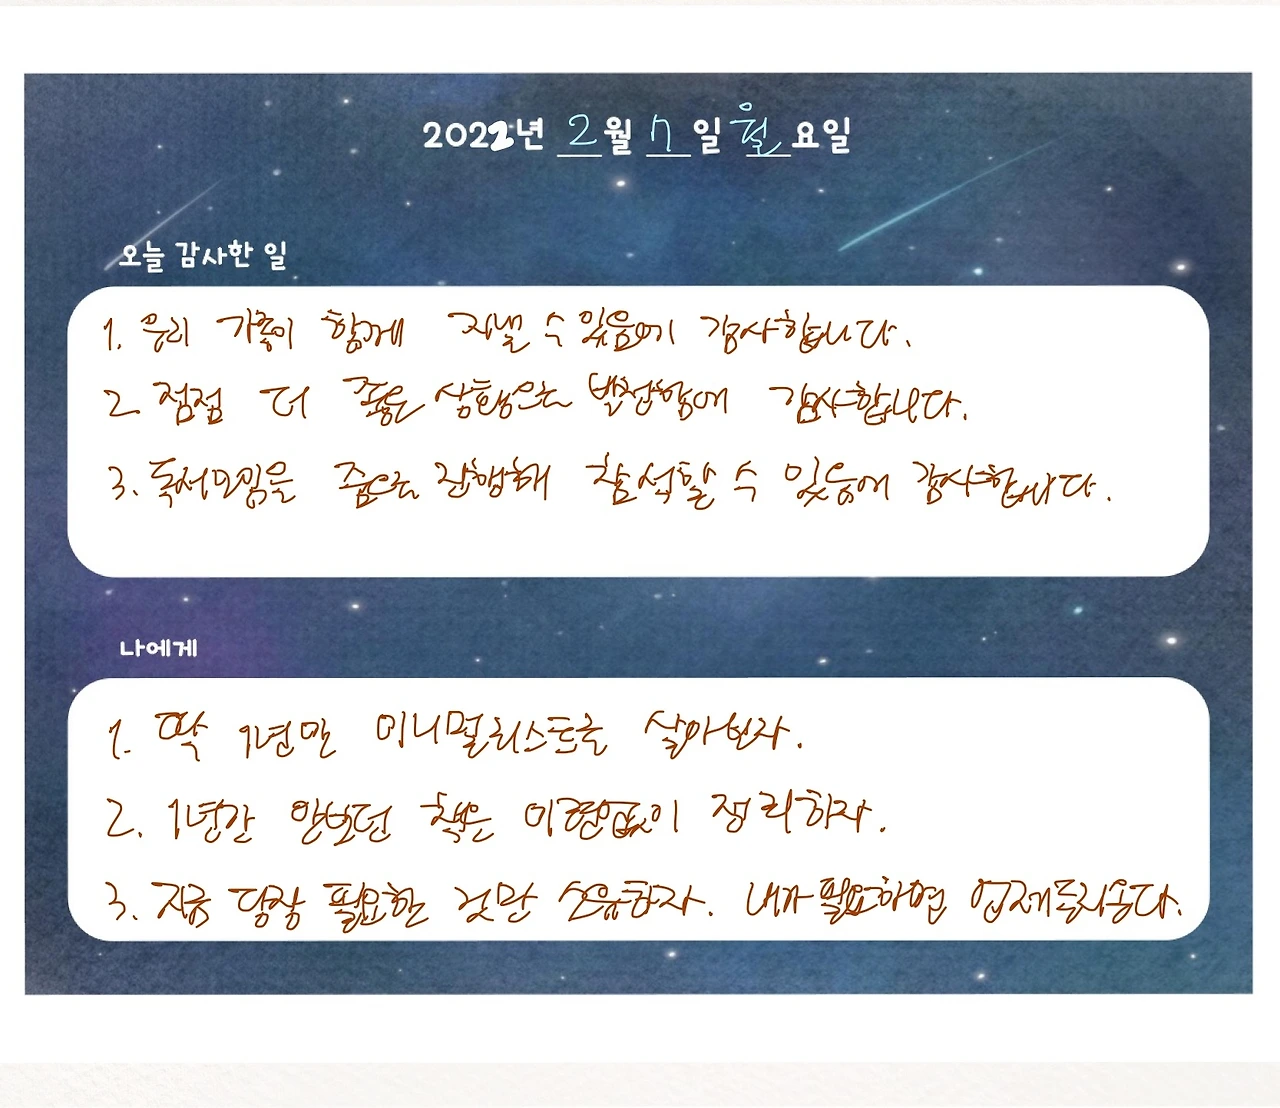 2022년 2월 7일 월요일
오늘 감사한 일
1. 우리 가족이 함께 지낼 수 있음에 감사합니다.
2. 점점 더 좋은 상황으로 발전함에 감사합니다.
3. 독서모임을 줌으로 진행해 참석할 수 있음에 감사합니다.
나에게
1. 딱 1년만 미니멀리스트로 살아보자.
2. 1년간 안보던 책은 미련없이 정리하자.
3. 지금 당장 필요한 것만 소유하자. 내가 필요하면 언제든지온다.